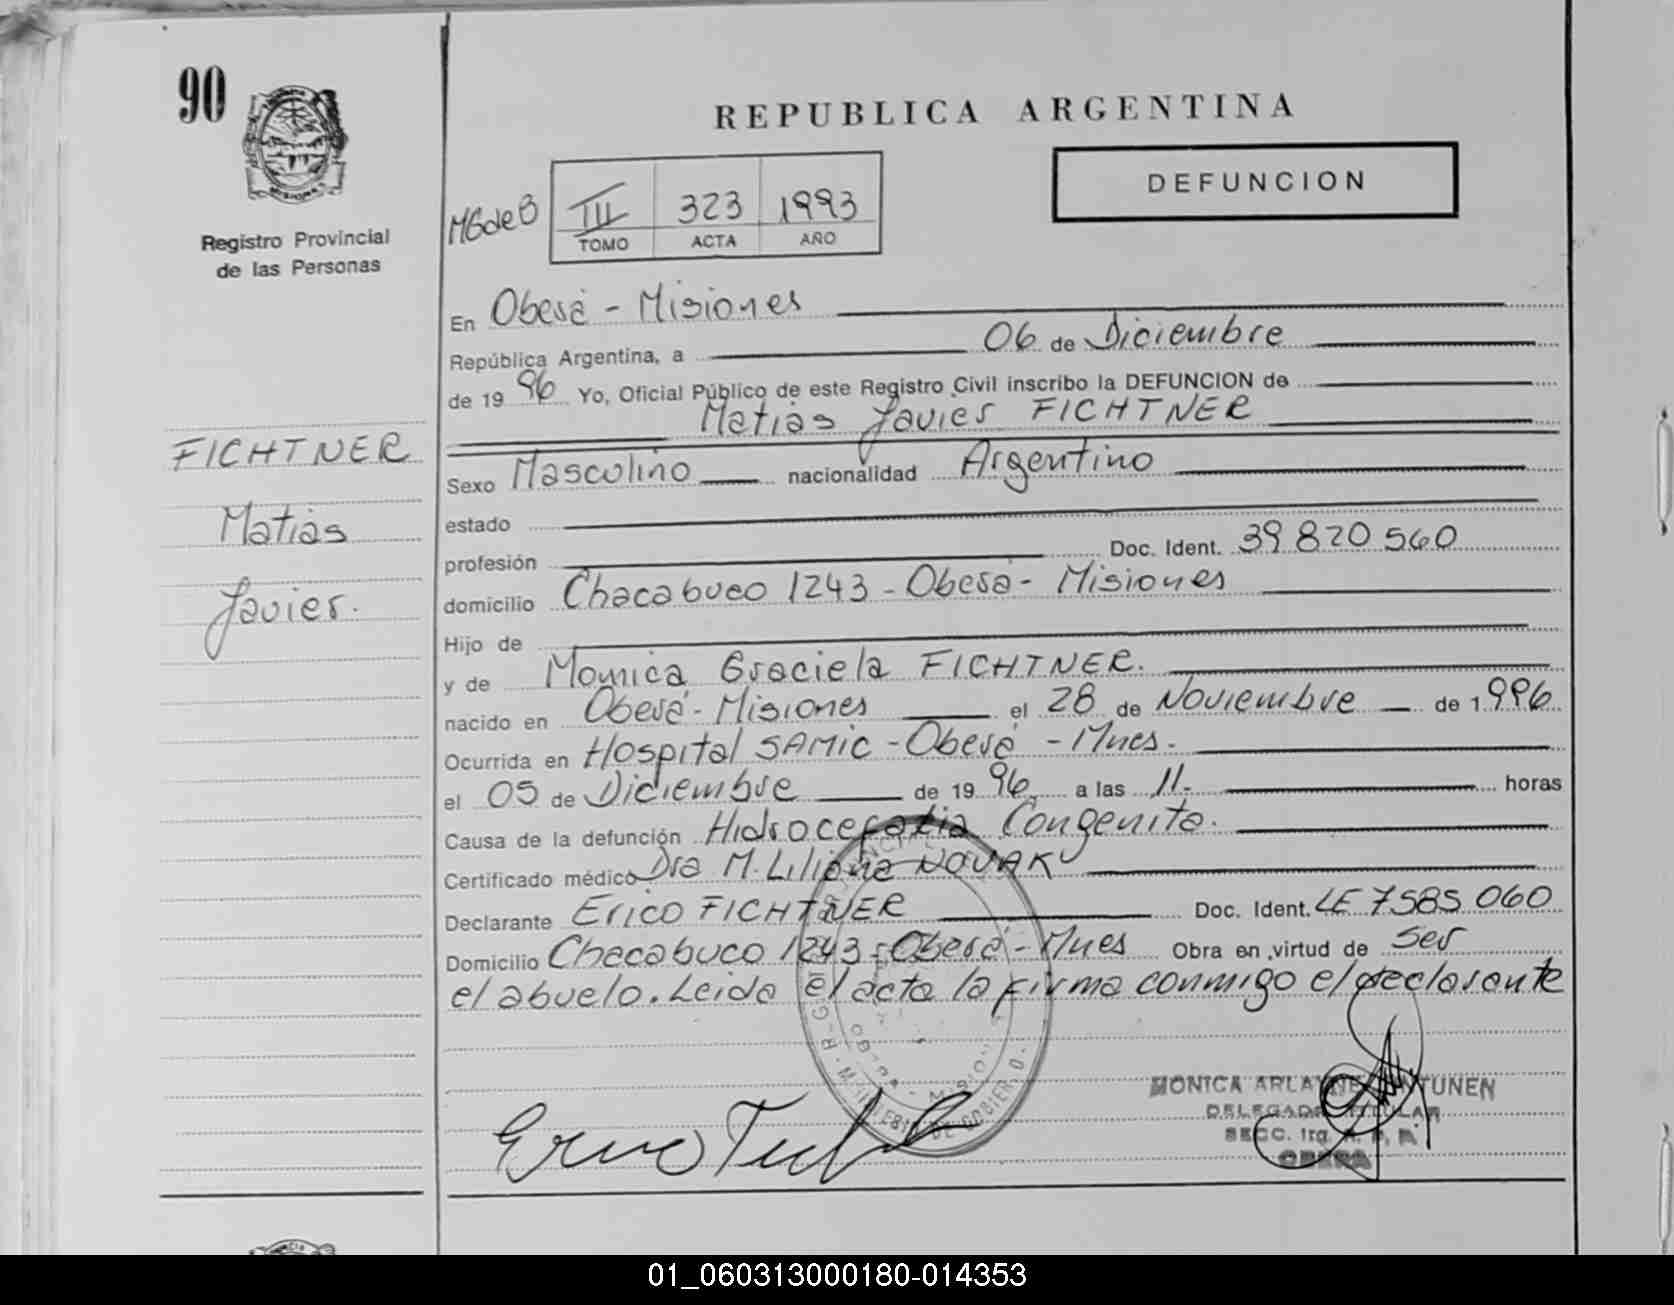 90
REPUBLICA ARGENTINA
DEFUNCION
Registro Provincial
de las Personas
MGdeB
III 323 1993
TOMO ACTA AÑO
En Oberá - Misiones
República Argentina, a 06 de Diciembre
de 19 96 Yo, Oficial Público de este Registro Civil inscribo la DEFUNCION de
Matias Javier FICHTNER
FICHTNER
Matias
Javier.
Sexo Masculino nacionalidad Argentino
estado
profesión Doc. Ident. 39 820 560
domicilio Chacabuco 1243 - Oberá - Misiones
Hijo de
y de Monica Graciela FICHTNER.
nacido en Oberá - Misiones el 28 de Noviembre de 1996
Ocurrida en Hospital SAMIC - Oberá - Mnes.
el 05 de Diciembre de 19 96 a las 11. horas
Causa de la defunción Hidrocefalia Congenita.
Certificado médico Dra M. Liliana NOVAK
Declarante Erico FICHTNER Doc. Ident. LE 7585 060
Domicilio Chacabuco 1243 - Oberá - Mnes Obra en virtud de ser
el abuelo. Leida el acta la firma conmigo el declarante
MONICA ARLA
DELEGADA TITULAR
SECC. 1ra. R. P. P.
OBERA
01_060313000180-014353